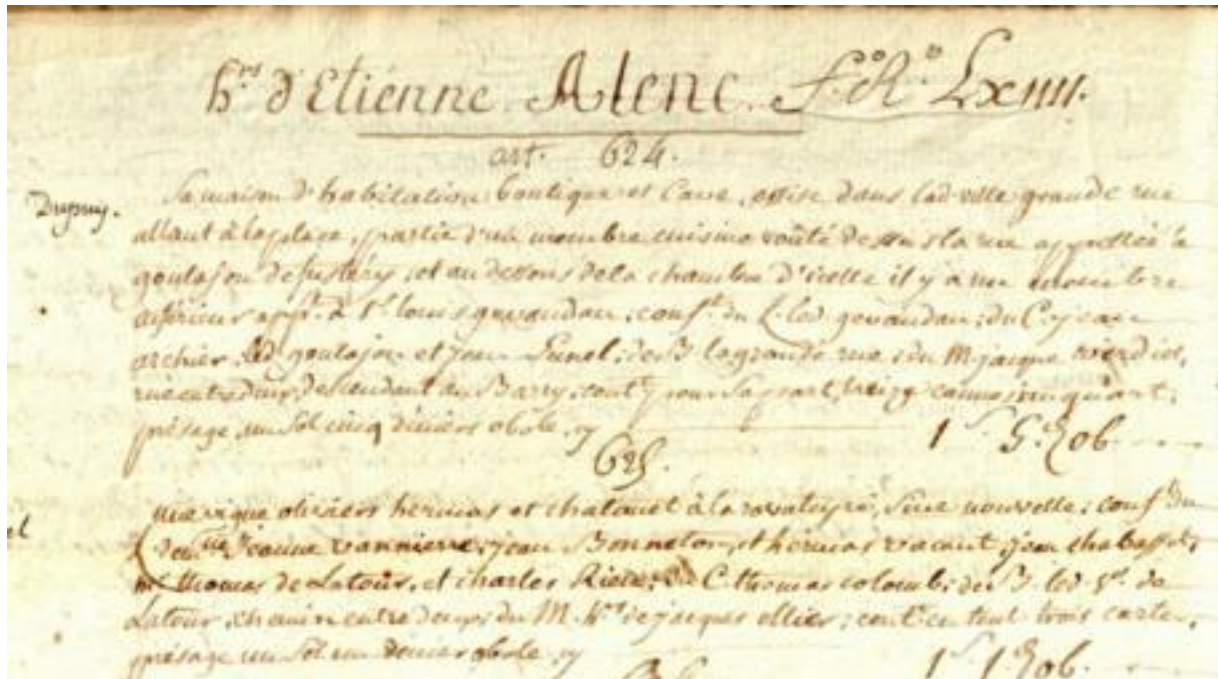 hrs d'Etienne Alenc. f.o R.o Lxiiii.
art. 624.
Dupuy.
Sa maison d'habitation boutique et Cave, assise dans lad. ville grande rue
allant à la place, partie d'un membre cuisine voûté dessus la rue appellée le
goulajou de fustéry, et au dessous de la chambre d'icelle il y a un membre
inférieur appt. à Sr. louis gevaudan; confte. du L. led. gevaudan; du C. jean
archier led. goulajou et jean Lunel; de B. la grande rue; du M. jacque verdier,
rue entre deux, descendant au Barry; contt. pour sa part, treize cannes un quart;
présage, un sol cinq deniers obole. cy 1 s. 5 d. ob.
625.
el
une vigne oliviers hermas et chataniet à la; confte. du
Jeanne vanniere, jean Bonneton, et hermas vacant, jean chabassut,
mr. thomas de Latour, et charles; du C. thomas colomb; de B. led. Sr. de
Latour, chemin entre deux; du M. hrs. de jacques ollier; contt. en tout trois cartes,
présage un sol un denier obole. cy 1 s. 1 d. ob.